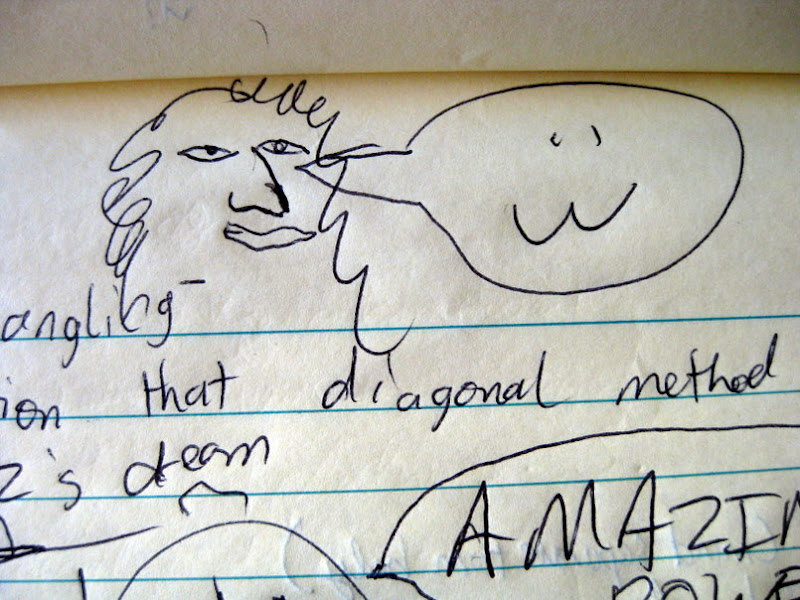 angling-
ion that diagonal method
z's dream
AMAZIN
POWE